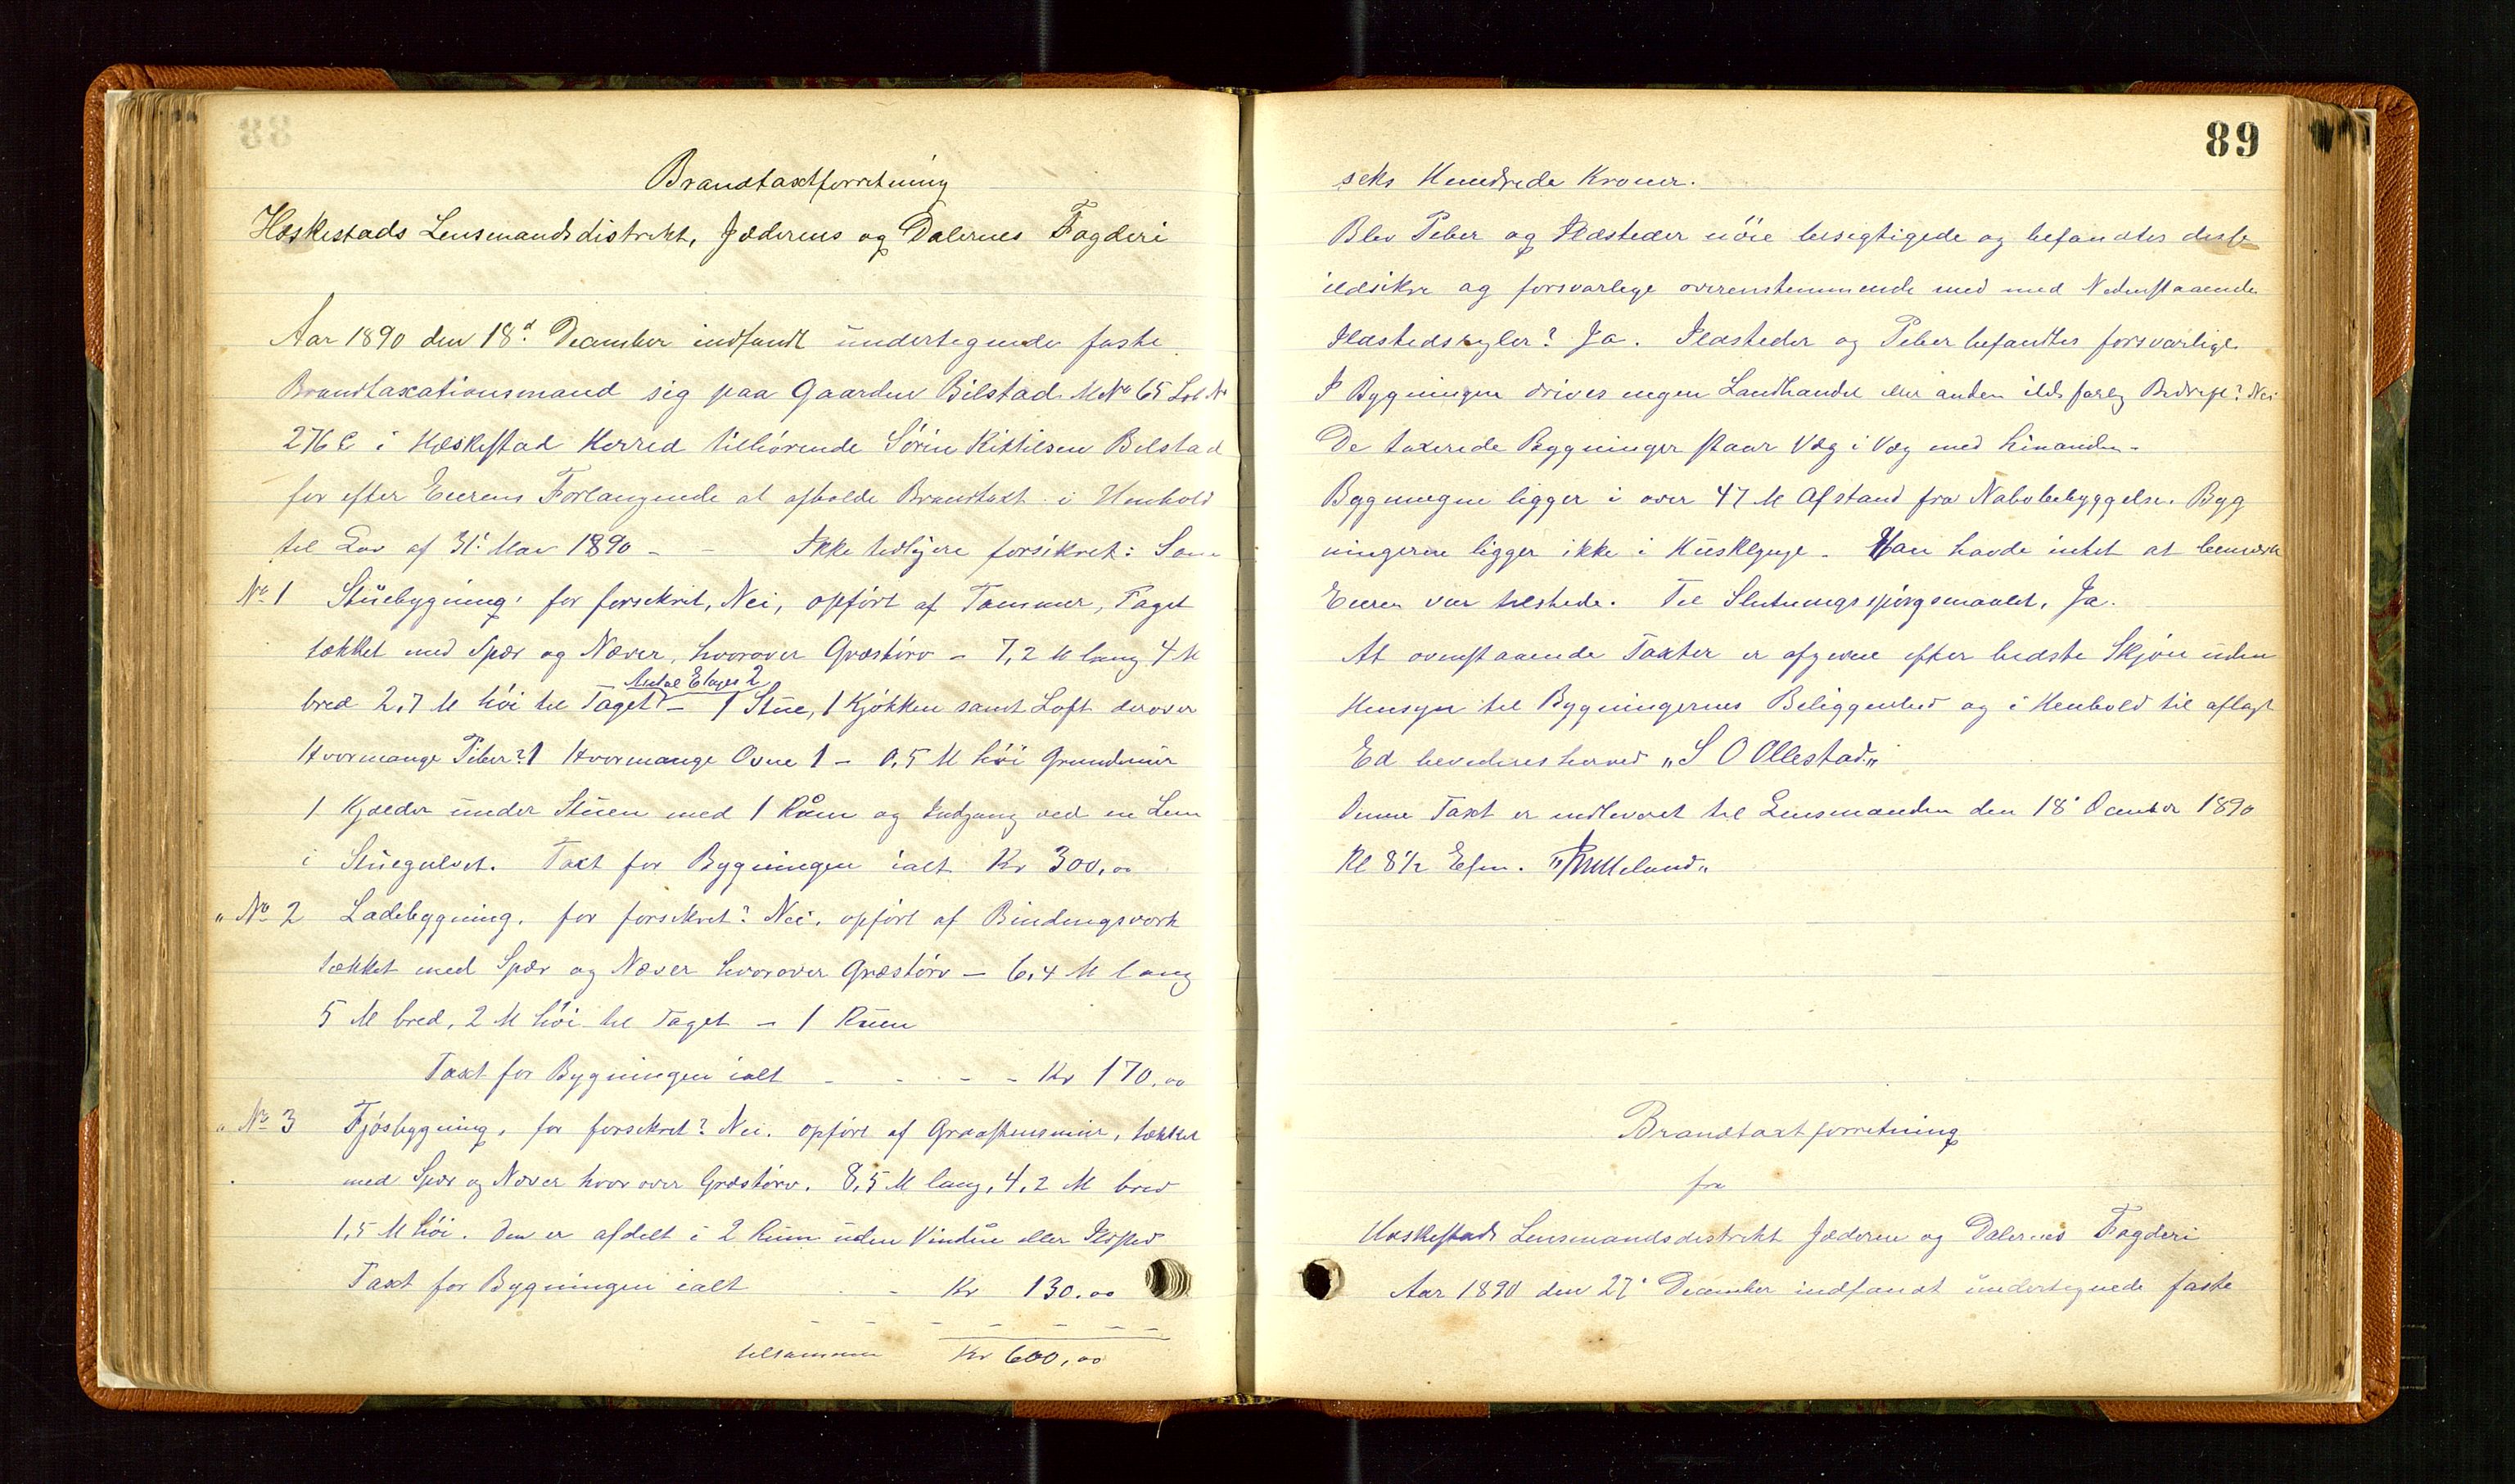 Brandtaxtforretning
Hæskestads Lensmandsdistrikt, Jæderens og Dalernes Fogderi
Aar 1890 den 18d December indfandt undertegnede faste
Brandtaxationsmand sig paa Gaarden Bilstad M.No 65 Lob No
276 c i Hæskestad Herred tilhørende Sørin Kittilsen Bilstad
for efter Eierens Forlangende at afholde Brandtaxt i Henhold
til Lov af 31. Mai 1890 - - Ikke tidligere forsikret:
No 1 Stuebygning, før forsikret, Nei, opført af Tømmer, Taget
tækket med Spær og Næver, hvorover Græstørv - 7,2 M lang 4 M
Antal Etager 2
bred 2,7 M høi til Taget - 1 Stue, 1 Kjøkken samt Loft derover
Hvormange Piber? 1 Hvormange Ovne 1 - 0,5 M høi Grundmur
1 Kjælder under Stuen med 1 Rum og Indgang ved en Lem
i Stuegulvet. Taxt for Bygningen ialt Kr 300,00
" No 2 Ladebygning, før forsikret? Nei, opført af Bindingsverk
tækket med Spær og Næver hvorover Græstørv - 6,4 M lang
5 M bred, 2 M høi til Taget - 1 Rum
Taxt for Bygningen ialt - - - - Kr 170,00
" No 3 Fjøsbygning, før forsikret? Nei. opført af Graastensmur, tækket
med Spær og Næver hvor over Græstørv. 8,5 M lang, 4,2 M bred
1,5 M høi. Den er afdelt i 2 Rum uden Vindue eller Ildsted
Taxt for Bygningen ialt - - Kr 130.00
tilsammen Kr 600,00
89
seks Hundrede Kroner.
Blev Piber og Ildsteder nöie besigtigede og befandtes disse
ildsikre og forsvarlige overenstemmende med med Nedenstaaende
Ildstedsregler? Ja. Ildsteder og Piber befandtes forsvarlige
I Bygningen drives ingen Landhandel eller anden ildsfarlig Bedrift? Nei
De taxerede Bygninger staar Væg i Væg med hinanden -
Bygningerne ligger i over 47 M Afstand fra Nabobebyggelse. Byg
ningerne ligger ikke i Husklynge - Han havde intet at bemærke
Eieren var tilstede. Til Slutningsspørgsmaalet, Ja.
At ovenstaaende Taxter er afgivne efter bedste Skjøn uden
Hensyn til Bygningernes Beliggenhed og i Henhold til aflagt
Ed bevidnes herved "S O Ollestad"
Denne Taxt er indleveret til Lensmanden den 18' December 1890
Kl 8½ Efm.
Brandtaxtforretning
fra
Hæskestads Lensmandsdistrikt Jæderen og Dalernes Fogderi
Aar 1890 den 27' December indfandt undertegnede faste